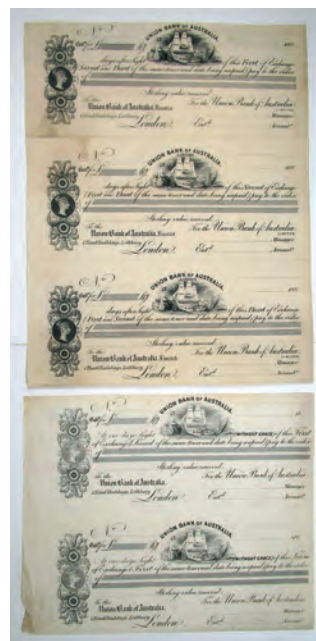 No
UNION BANK OF AUSTRALIA
188
Exc. for £
days after sight of this First of Exchange
Second and Third of the same tenor and date being unpaid) pay to the order
of
Sterling value received.
To the
Union Bank of Australia, Limited
For the Union Bank of Australia
LIMITED
1 Bank Buildings, Lothbury
Manager
London
Entd
Accountt
No
UNION BANK OF AUSTRALIA
188
Exc. for £
days after sight of this Second of Exchange
(First and Third of the same tenor and date being unpaid) pay to the order
of
Sterling value received.
To the
Union Bank of Australia, Limited
For the Union Bank of Australia
LIMITED
1 Bank Buildings, Lothbury
Manager
London
Entd
Accountt
No
UNION BANK OF AUSTRALIA
188
Exc. for £
days after sight of this Third of Exchange
(First and Second of the same tenor and date being unpaid) pay to the order
of
Sterling value received.
To the
Union Bank of Australia, Limited
For the Union Bank of Australia
LIMITED
1 Bank Buildings, Lothbury
Manager
London
Entd
Accountt
No
UNION BANK OF AUSTRALIA
18
for £
days sight (WITHOUT GRACE) of this First
of Exchange (Second of the same tenor and date being unpaid) pay to the order
of
Sterling value received.
To the
Union Bank of Australia,
For the Union Bank of Australia
1 Bank Buildings, Lothbury
Manager
London
Entd
Accountt
No
UNION BANK OF AUSTRALIA
18
for £
days sight (WITHOUT GRACE) of this Second
of Exchange (First of the same tenor and date being unpaid) pay to the order
of
Sterling value received.
To the
Union Bank of Australia,
For the Union Bank of Australia
1 Bank Buildings, Lothbury
Manager
London
Entd
Accountt